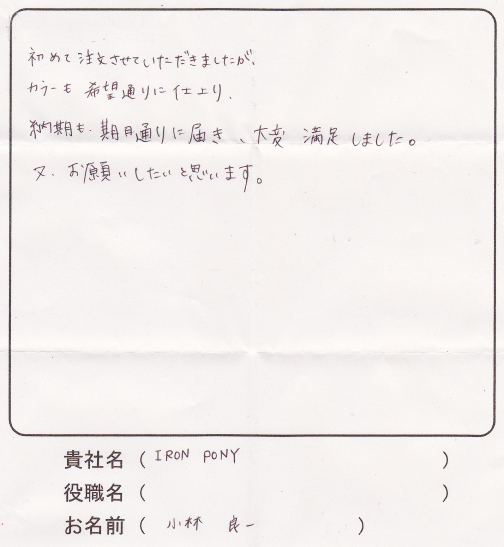 初めて注文させていただきましたが、
カラーも 希望通りに仕上り、
納期も、期日通りに届き、大変 満足しました。
又、お願いしたいと思います。
貴社名 ( IRON PONY )
役職名 ( )
お名前 ( 小林 良一 )